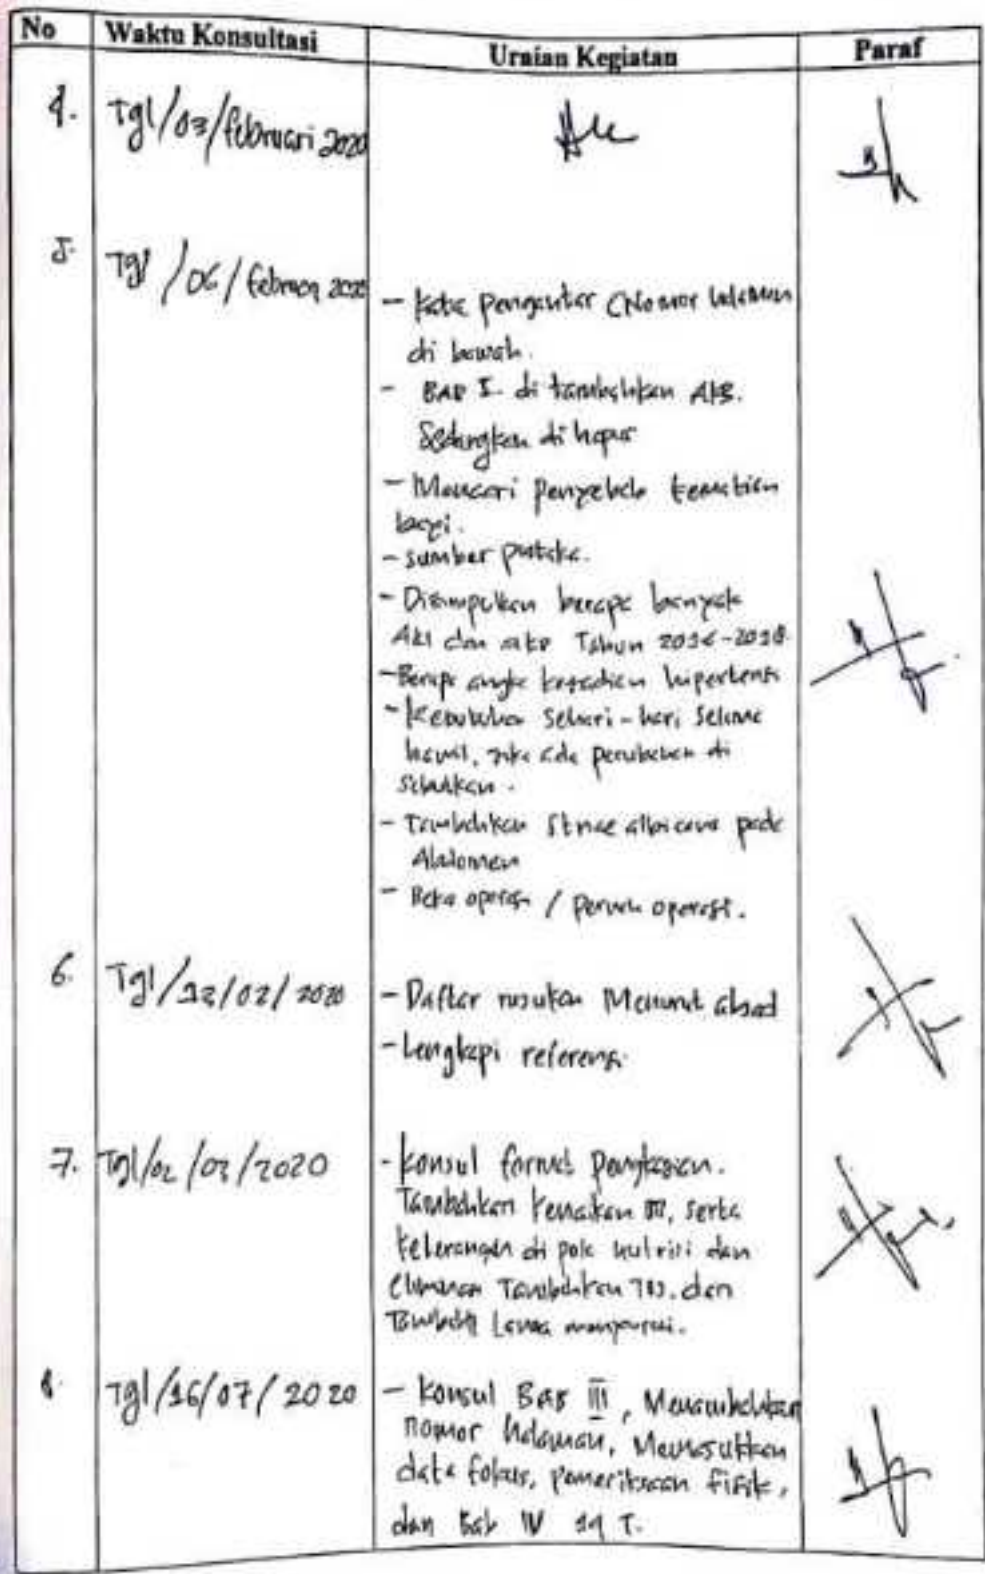 No Waktu Konsultasi Uraian Kegiatan Paraf
4. Tgl/03/februari 2020 Acc
5. Tgl /06/ februari 2020
- Kata pengantar (Nomor halaman
di bawah.
- BAB I. di tambahkan AKB.
Sedangkan di hapus
- Mencari penyebab kematian
bayi.
- sumber pustaka.
- Disimpulkan berapa banyak
AKI dan AKB Tahun 2016-2018.
- Berapa angka kejadian hipertensi
- Kebutuhan sehari-hari selama
hamil, jika ada perubahan di
sebutkan.
- Tambahkan Striae albicans pada
Abdomen
- Beka operasi / pernah operasi.
6. Tgl/12/02/2020 - Daftar rusukan Menurut abjad
- Lengkapi referensi
7. Tgl/02/03/2020 - Konsul format pengkajian.
Tambahkan kenaikan BB, serta
keterangan di pola nutrisi dan
eliminasi Tambahkan TBJ. dan
Lama menyusui.
8. Tgl/16/07/2020 - Konsul BAB III, Menambahkan
nomor halaman, Memasukkan
data fokus, pemeriksaan fisik,
dan Bab IV 14 T.